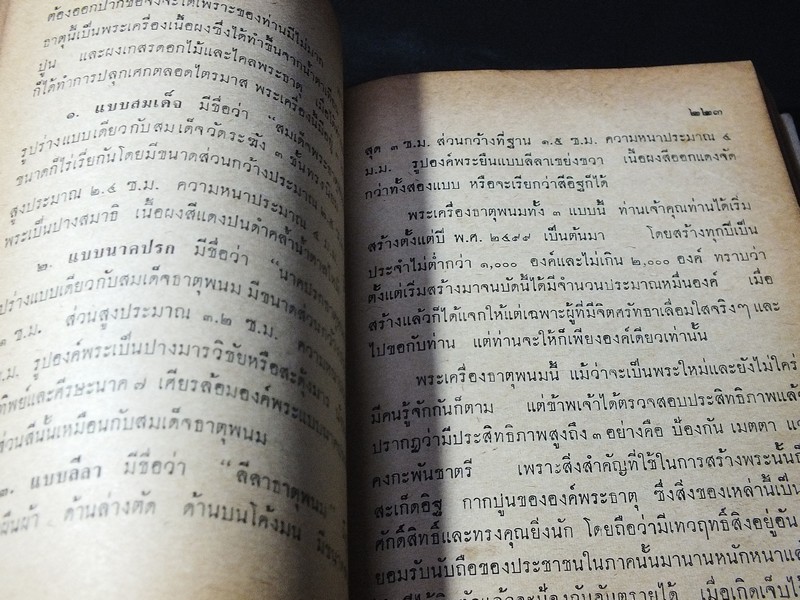 ต้องออกปากขอจึงจะได้เพราะของท่านมีไม่มาก
ธาตุนี้เป็นพระเครื่องเนื้อผงซึ่งได้ทำขึ้นจาก
ปูน และผงเกสรดอกไม้และไคลพระธาตุ
ก็ได้ทำการปลุกเศกตลอดไตรมาส พระเครื่องนี้มีอยู่
๑. แบบสมเด็จ มีชื่อว่า “สมเด็จพระธาตุ
รูปร่างแบบเดียวกับสมเด็จวัดระฆัง ๓ ชั้น
ขนาดก็ไร่เรี่ยกันโดยมีขนาดส่วนกว้างประมาณ
สูงประมาณ ๒.๕ ซ.ม. ความหนาประมาณ ๔
พระเป็นปางสมาธิ เนื้อผงสีแดงปนดำคล้ำ
๒. แบบนาคปรก มีชื่อว่า “นาคปรกธาตุ
รูปร่างแบบเดียวกับสมเด็จธาตุพนม มีขนาดส่วนกว้าง
ซ.ม. ส่วนสูงประมาณ ๓.๒ ซ.ม. ความหนา
ม.ม. รูปองค์พระเป็นปางมารวิชัยหรือสะดุ้งมาร
ทิพย์และศีรษะนาค ๗ เศียรล้อมองค์พระแบบนาค
ส่วนสีนั้นเหมือนกับสมเด็จธาตุพนม
๓. แบบลีลา มีชื่อว่า “ลีลาธาตุพนม”
ผืนผ้า ด้านล่างตัด ด้านบนโค้งมน
๒๒๓
สุด ๓ ซ.ม. ส่วนกว้างที่ฐาน ๑.๕ ซ.ม. ความหนาประมาณ ๔
ม.ม. รูปองค์พระยืนแบบลีลาเขย่งขวา เนื้อผงสีออกแดงจัด
กว่าทั้งสองแบบ หรือจะเรียกว่าสีอิฐก็ได้
พระเครื่องธาตุพนมทั้ง ๓ แบบนี้ ท่านเจ้าคุณท่านได้เริ่ม
สร้างตั้งแต่ปี พ.ศ. ๒๔๙๙ เป็นต้นมา โดยสร้างทุกปีเป็น
ประจำไม่ต่ำกว่า ๑,๐๐๐ องค์และไม่เกิน ๒,๐๐๐ องค์ ทราบว่า
ตั้งแต่เริ่มสร้างมาจนบัดนี้ได้มีจำนวนประมาณหมื่นองค์ เมื่อ
สร้างแล้วก็ได้แจกให้แต่เฉพาะผู้ที่มีจิตศรัทธาเลื่อมใสจริงๆ และ
ไปขอกับท่าน แต่ท่านจะให้ก็เพียงองค์เดียวเท่านั้น
พระเครื่องธาตุพนมนี้ แม้ว่าจะเป็นพระใหม่และยังไม่ใคร่
มีคนรู้จักกันก็ตาม แต่ข้าพเจ้าได้ตรวจสอบประสิทธิภาพแล้ว
ปรากฏว่ามีประสิทธิภาพสูงถึง ๓ อย่างคือ ป้องกัน เมตตา
คงกะพันชาตรี เพราะสิ่งสำคัญที่ใช้ในการสร้างพระนั้น
สะเก็ดอิฐ กากปูนขององค์พระธาตุ ซึ่งสิ่งของเหล่านี้เป็น
ศักดิ์สิทธิ์และทรงคุณยิ่งนัก โดยถือว่ามีเทวฤทธิ์สิงอยู่อัน
ยอมรับนับถือของประชาชนในภาคนั้นมานานหนักหนาแล้ว
แล้วจะป้องกันอันตรายได้ เมื่อเกิดเจ็บไ